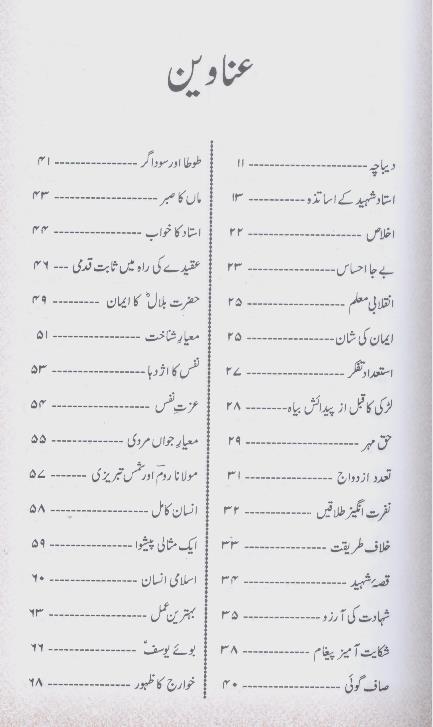 عناوین
دیباچہ ------------------------ ۱۱
استاد شہید کے اساتذہ ------------ ۱۳
اخلاص ------------------------ ۲۲
بے جا احساس ------------------ ۲۳
انقلابی معلم ------------------ ۲۵
ایمان کی شان ------------------ ۲۵
استعداد تفکر ------------------ ۲۷
لڑکی کا قبل از پیدائش بیاہ -------- ۲۸
حق مہر ------------------------ ۲۹
تعدد ازدواج ------------------ ۳۱
نفرت انگیز طلاقیں -------------- ۳۲
خلاف طریقت ------------------ ۳۳
قصۂ شہید -------------------- ۳۴
شہادت کی آرزو ---------------- ۳۵
شکایت آمیز پیغام -------------- ۳۸
صاف گوئی -------------------- ۴۰
طوطا اور سوداگر ---------------- ۴۱
ماں کا صبر -------------------- ۴۳
استاد کا خواب ---------------- ۴۴
عقیدے کی راہ میں ثابت قدمی --- ۴۶
حضرت بلالؓ کا ایمان ---------- ۴۹
معیارِ شناخت ---------------- ۵۱
نفس کا اژدہا ------------------ ۵۳
عزتِ نفس -------------------- ۵۴
معیارِ جواں مردی -------------- ۵۵
مولانا رومؒ اور شمس تبریزی ------ ۵۷
انسان کامل ------------------ ۵۸
ایک مثالی پیشوا ---------------- ۵۹
اسلامی انسان ---------------- ۶۰
بہترین عمل ------------------ ۶۳
بوئے یوسفؑ ------------------ ۶۶
خوارج کا ظہور ---------------- ۶۸